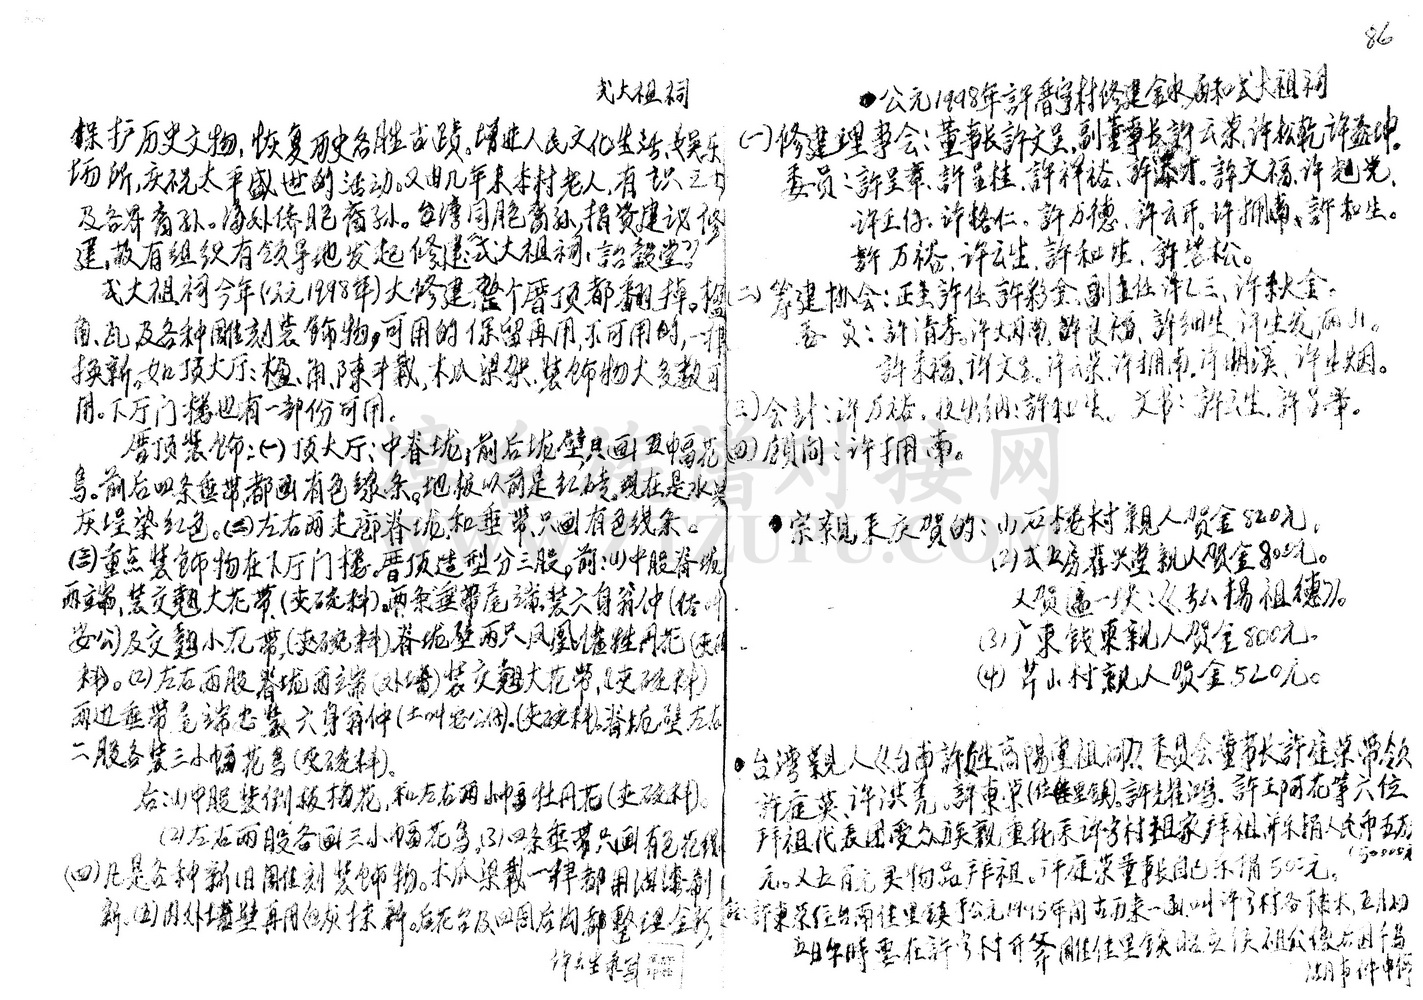 86
弍大祖祠
保护历史文物，恢复历史名胜古蹟。增进人民文化生活、娱乐
场所，庆祝太平盛世的活动。又由几年来本村老人，有识之士
及各界裔孙。海外侨胞裔孙。台湾同胞裔孙，捐资建议修
建，故有组织有领导地发起修建《弍大祖祠，詒穀堂》
弍大祖祠今年(公元1998年)大修建，整个厝顶都翻掉。楹
角、瓦、及各种雕刻装饰物，可用的保留再用，不可用的，一律
换新。如顶大厅、楹、角、陳斗載，木瓜梁架，装飾物大多数可
用。下厅门楼也有一部份可用。
厝顶装饰：(一)顶大厅：中脊垅，前后垅壁，只画五幅花
鸟。前后四条垂带，都画有色缐条，地板以前是红砖。现在是水
灰埕染红色。(二)左右两走廊脊垅和垂带，只画有色线条。
(三)重点装飾物在下厅门楼。厝顶造型分三股，前：(1)中股脊垅
两端，装交翹大花带，(夹碗料)。两条垂带尾端，装六身翁仲(俗叫
安公)及交翹小花带，(夹碗料)脊垅壁两只凤凰牡丹花(夹碗
料)。(2)左右两股脊垅两端(外墙)装交翹大花带，(夹碗料)
两边垂带尾端也装六身翁仲(土叫安公仔)。(夹碗料)脊垅壁左右
二股各装三小幅花鸟(夹碗料)。
后：(1)中股装倒板梅花，和左右两小幅牡丹花(夹碗料)。
(2)左右两股各画三小幅花鸟，(3)四条垂带只画有色花缐
(四)凡是各种新旧雕刻装饰物。木瓜梁載一律都用油漆刷
新。(五)内外墙壁再用白灰抹新。后花台及四周后沟都整理全新。
許云生
●公元1998年許厝宇村修建金水庙和弍大祖祠
(一)修建理事会：董事长許文呈，副董事长許云荣、许松乾、许益坤。
委员：許呈章、許呈桂、許祥裕、許添才。許文福、许勉党、
许正仔、许格仁。許万德、许云开、许拥南、許和生。
許万裕、许云生、許和生、許芸松。
(二)筹建协会：正主許仕、許彩金，副主任許乙三、許来金。
委员：許清孝、许文南、許良福、許細生、许生
許来福、许文呈、许云荣、许拥南、许湖溪、许生烟。
(三)会計：许万裕。收出纳：許和生。文书：許云生、許呈章。
(四)顾问：许拥南。
●宗親来庆贺的：(1)石楼村親人贺金820元。
(2)弍房兴堂親人贺金800元。
又贺匾一块：《弘揚祖德》。
(3)广東钱東親人贺金800元。
(4)芹山村親人贺金520元。
●台湾親人《台南許姓高陽堂祖祠》委员会董事长許庭荣带领
許庭英、许洪亮。許東荣(住佳里鎮)。許鴻、許王阿花等六位
拜祖代表团受众族親重托来许宇村祖家拜祖并乐捐人民币五万
(50000元
元。又五百元买物品拜祖。许庭荣董事長自己乐捐500元。
許東荣住台南佳里镇於公元1945年间古历来一函叫许宇村各棟木，五月初
五日午時要在許宇村开斧雕佳里鎮
漳台族谱对接网
WWW.ZZZUPU.COM